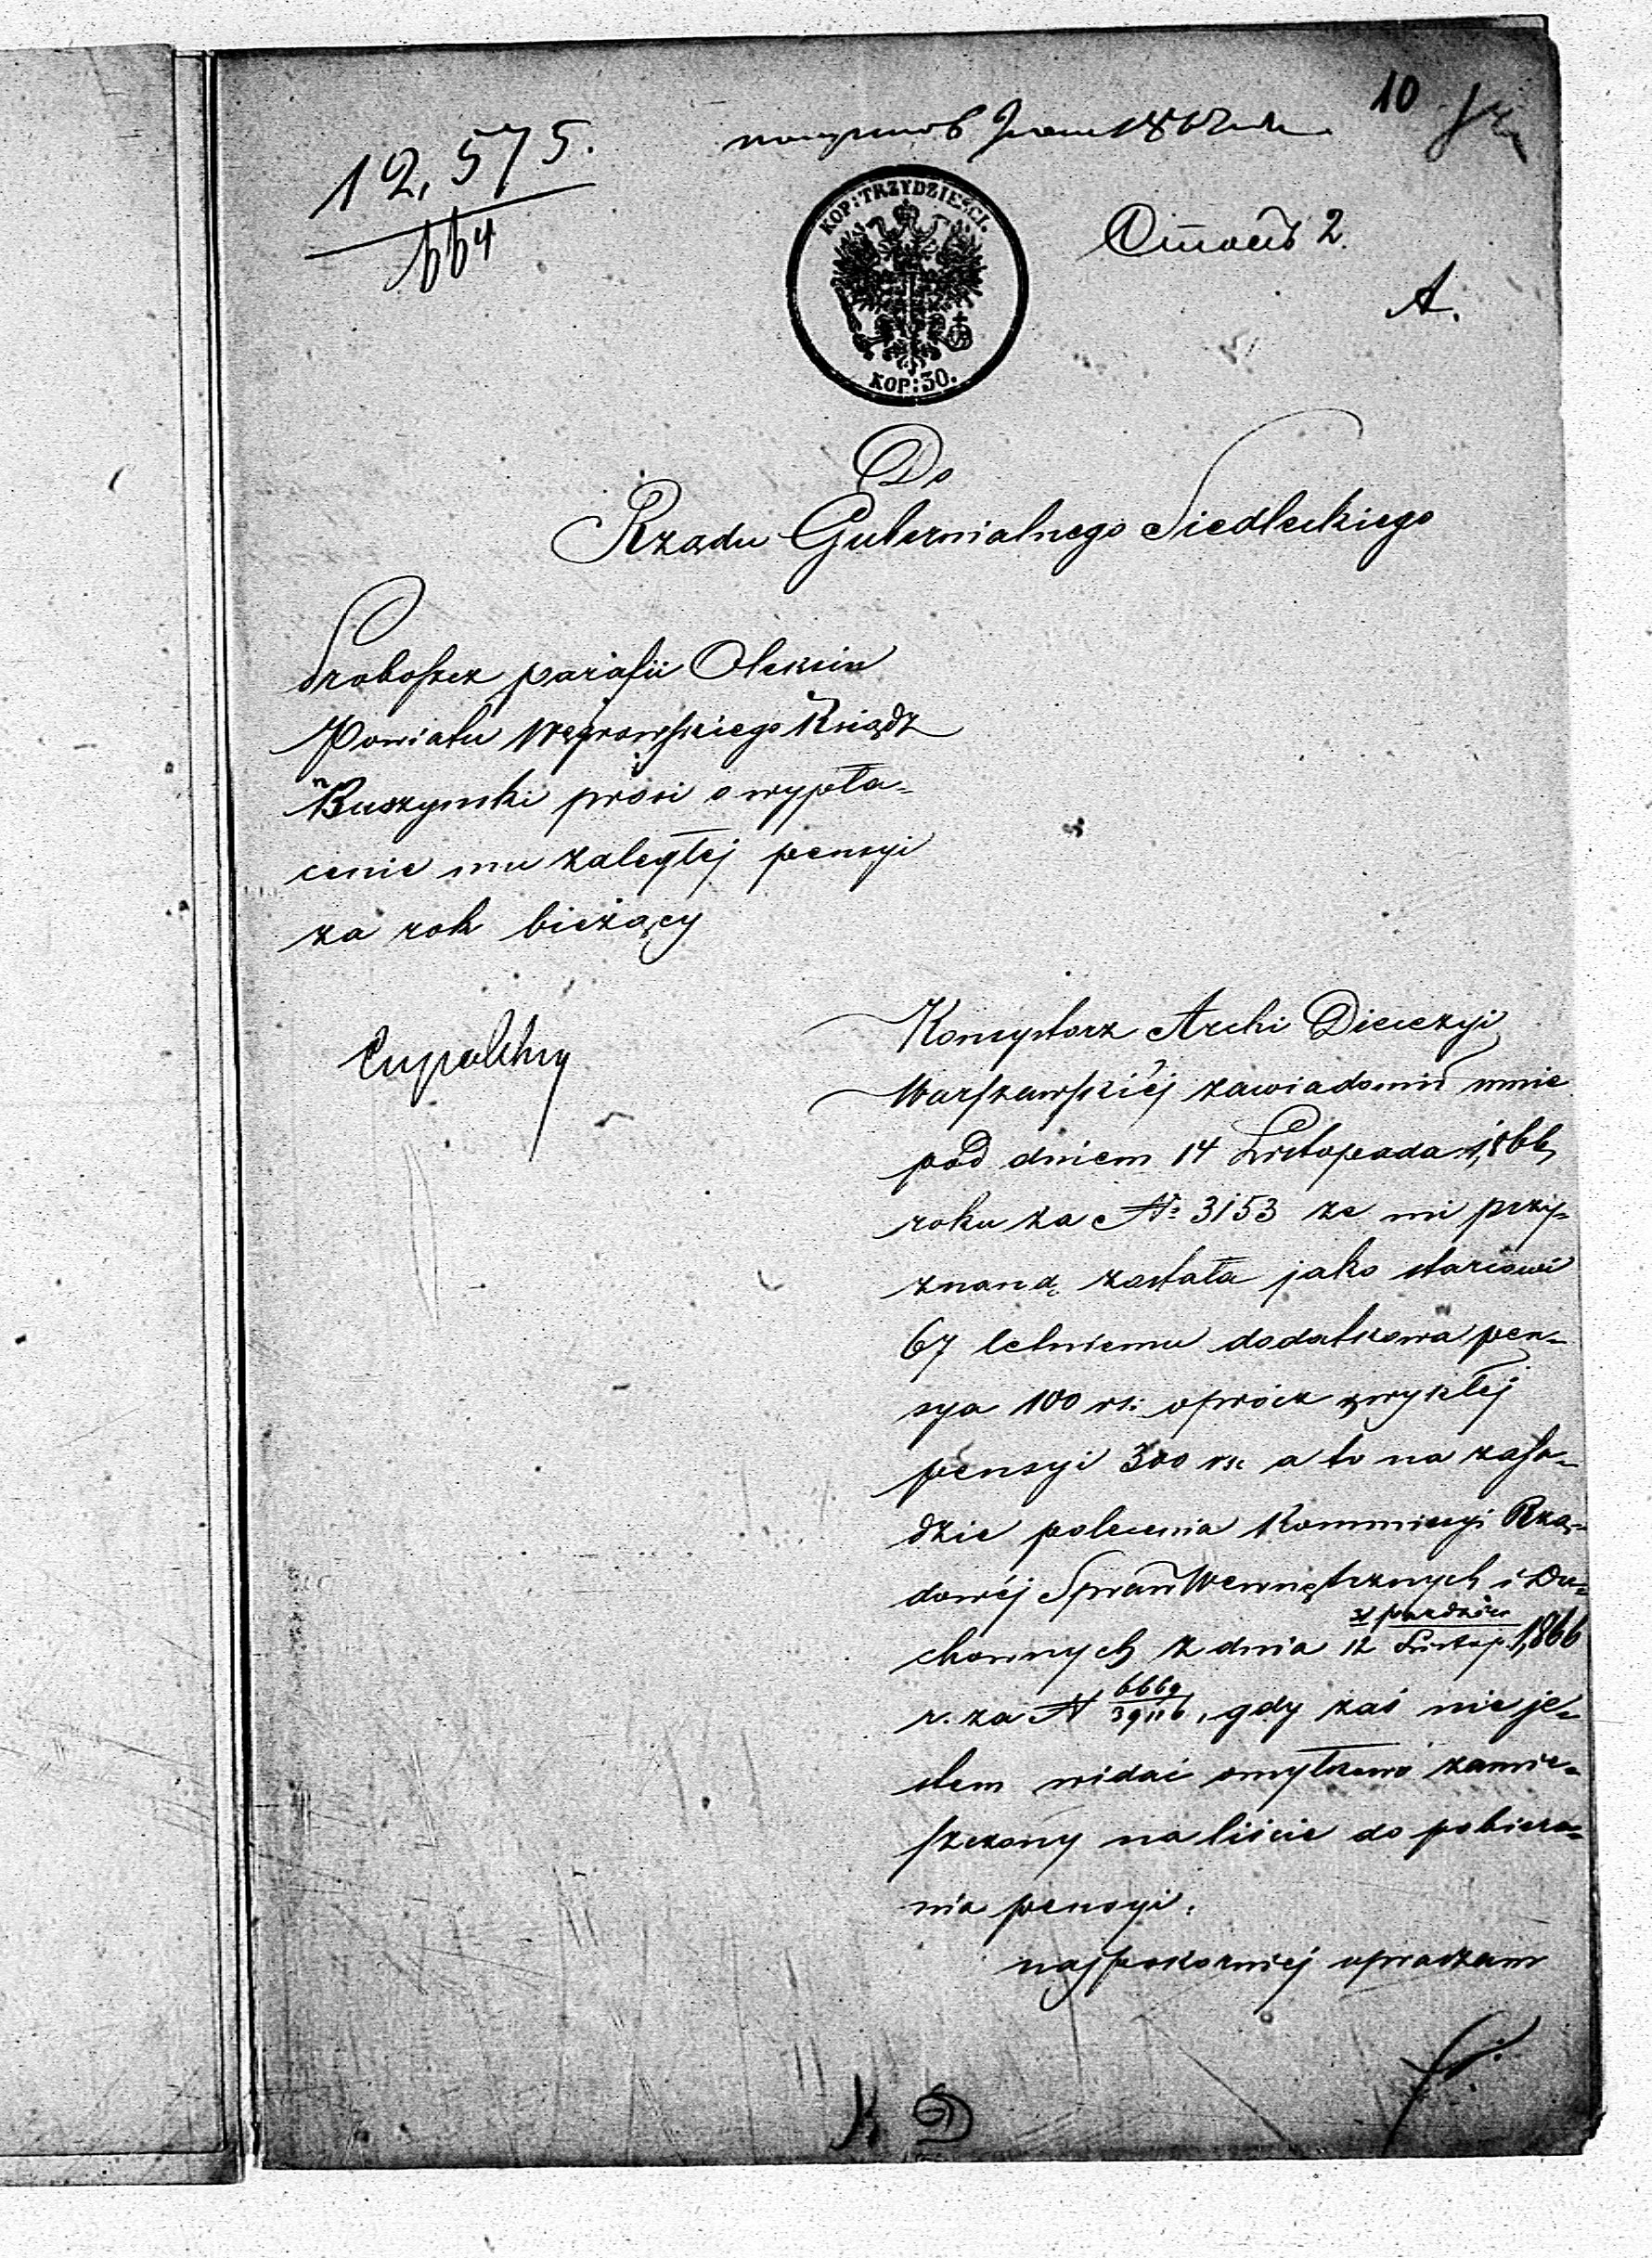 10
12,575.
664
KOP: TRZYDZIEŚCI.
KOP: 30.
2.
A.
Do
Rządu Gubernialnego Siedleckiego
Proboszcz parafii Oleksin
Powiatu Węgrowskiego Ksiądz
Buszyński prosi o wypła=
cenie mu zaległej pensyi
za rok bieżący
Konsystorz Archi Diecezyi
Warszawskiéj zawiadomił mnie
pod dniem 14 Listopada 1866
roku za No 3153 że mi przy=
znaną została jako starcowi
67 letniemu dodatkowa pen=
sya 100 rs: oprócz zwykłéj
pensyi 300 rs. a to na zasa=
dzie polecenia Kommissyi Rzą=
dowéj Spraw Wewnętrznych i Du=
chownych z dnia 31 paździer / 12 Listop. 1866
r. za N 6669 / 39116, gdy zaś nie je=
stem widać omyłkowo zamie=
szczony na liście do pobiera=
nia pensyi.
najpokorniéj upraszam
K D